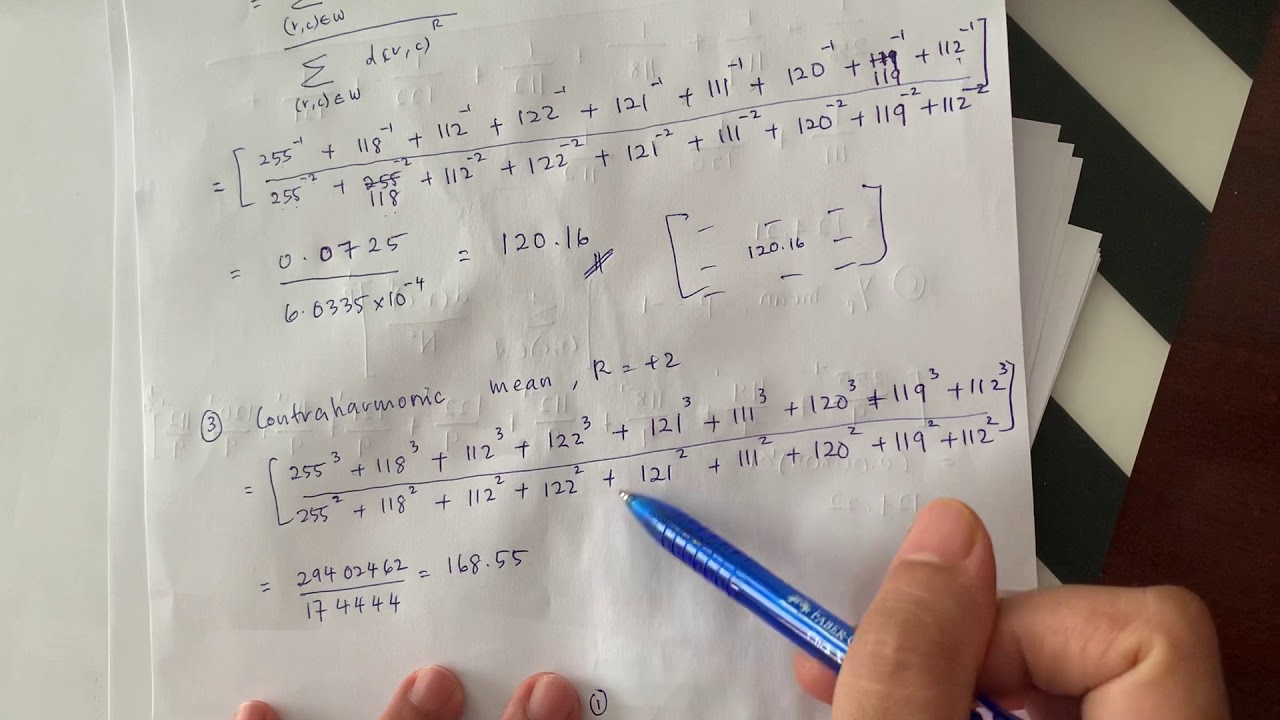 = Σ
(r,c)∈W
Σ d(r,c)^R
(r,c)∈W
= [ 255^-1 + 118^-1 + 112^-1 + 122^-1 + 121^-1 + 111^-1 + 120^-1 + 119^-1 + 112^-1 ]
255^-2 + 118^-2 + 112^-2 + 122^-2 + 121^-2 + 111^-2 + 120^-2 + 119^-2 + 112^-2
= 0.0725 / 6.0335×10^-4 = 120.16
[ 120.16 ]
③ Contraharmonic mean, R = +2
= [ 255^3 + 118^3 + 112^3 + 122^3 + 121^3 + 111^3 + 120^3 + 119^3 + 112^3 ]
255^2 + 118^2 + 112^2 + 122^2 + 121^2 + 111^2 + 120^2 + 119^2 + 112^2
= 29402462 / 174444 = 168.55
①
FABER-C